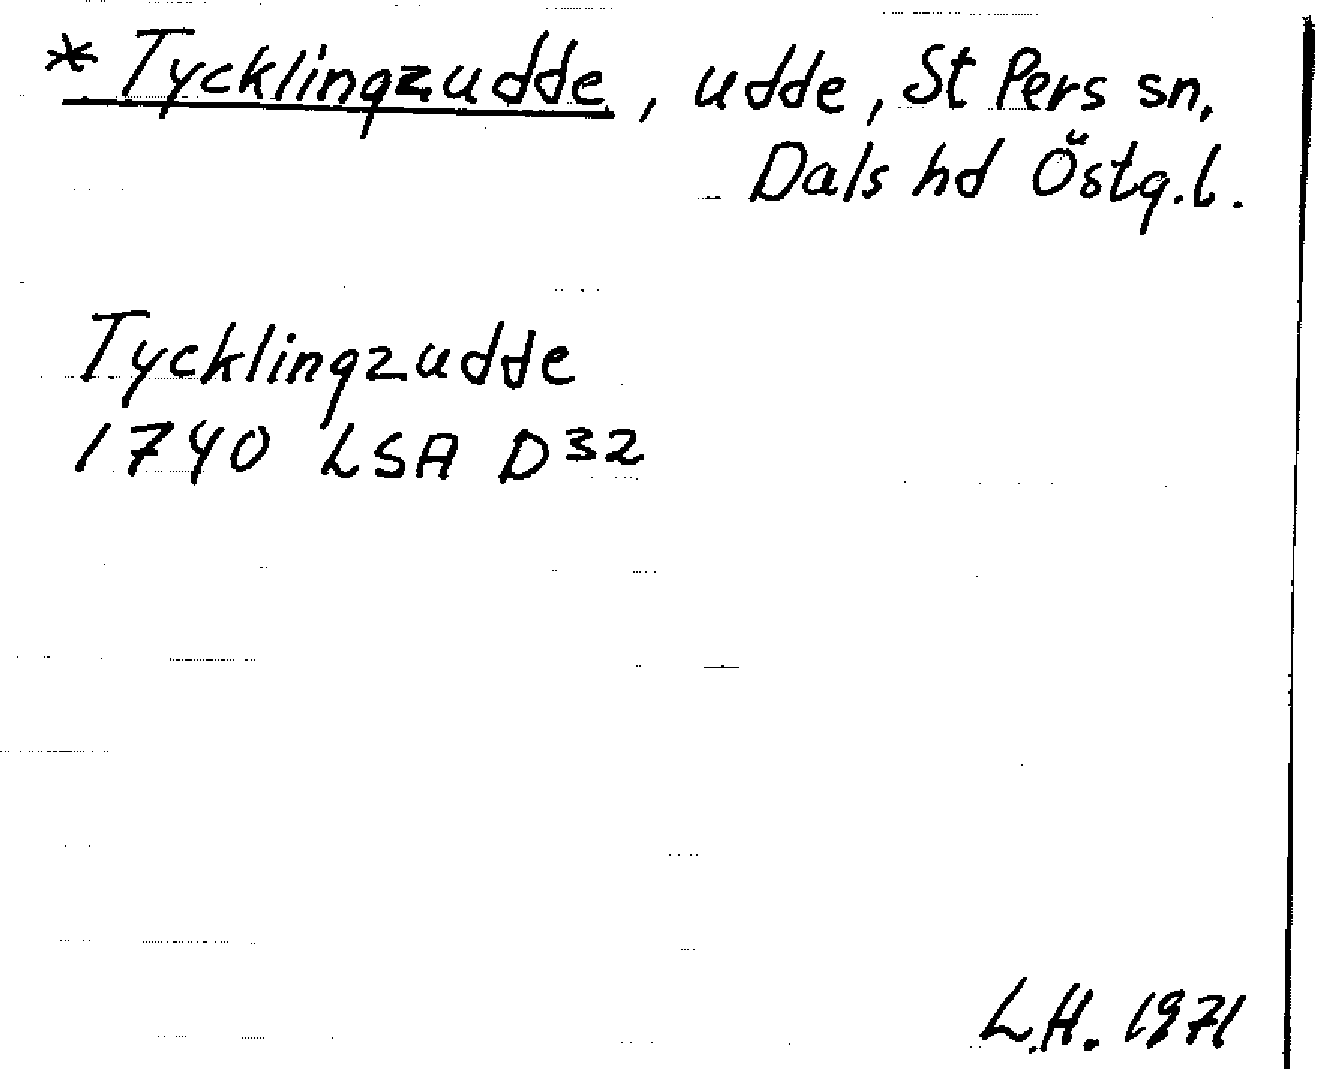 * Tycklingzudde, udde, St Pers sn,
Dals hd Östg.l.
Tycklingzudde
1740 LSA D32
L.H. 1971